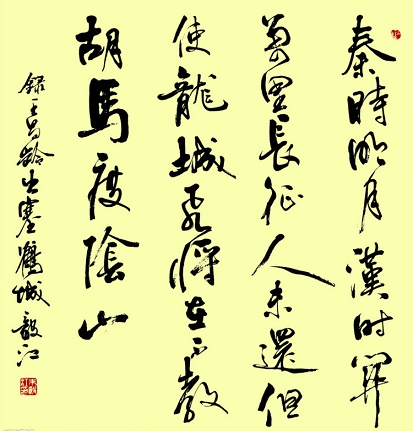 秦時明月漢时關
萬里長征人未還但
使龍城飛將在不教
胡馬度陰山
錄王昌齡出塞鶴城毅江